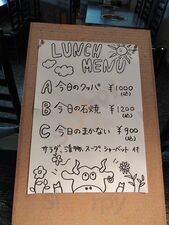 LUNCH
MENU
A 今日のクッパ ¥1000
(込)
B 今日の石焼 ¥1200
(込)
C 今日のまかない ¥900
(込)
サラダ、漬物、スープ、シャーベット 付